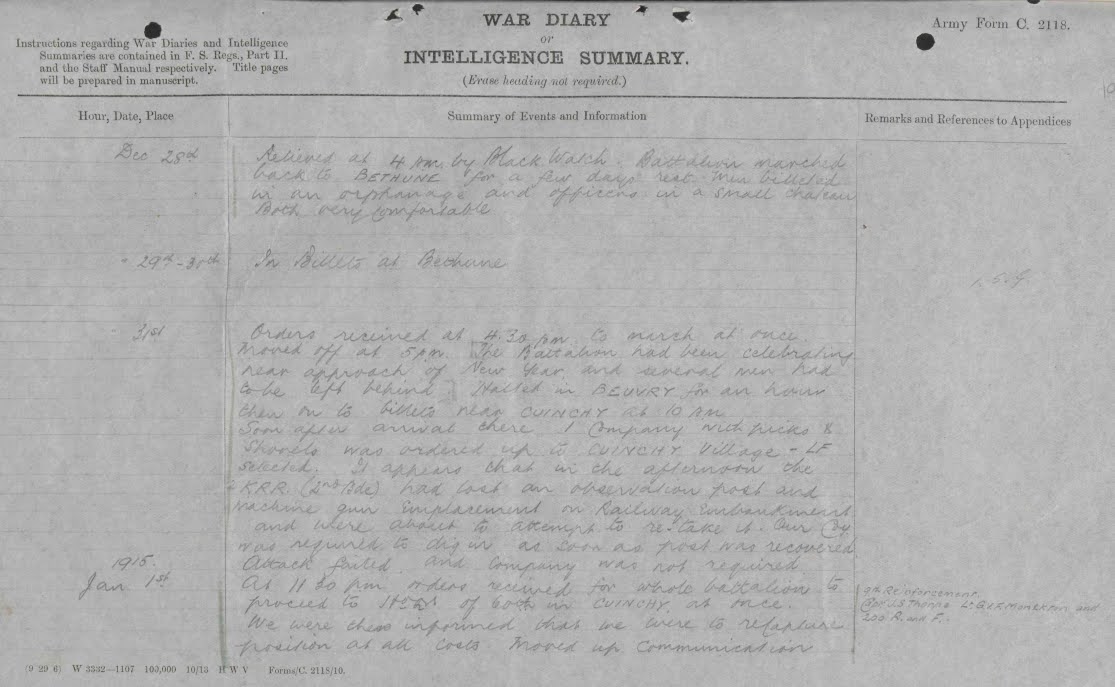 WAR DIARY
or
INTELLIGENCE SUMMARY.
(Erase heading not required.)
Army Form C. 2118.
Instructions regarding War Diaries and Intelligence
Summaries are contained in F. S. Regs., Part II.
and the Staff Manual respectively. Title pages
will be prepared in manuscript.
Hour, Date, Place
Summary of Events and Information
Remarks and References to Appendices
Dec 28th
Relieved at 4 pm by Black Watch. Battalion marched
back to BETHUNE for a few days rest. Men billeted
in an orphanage and officers in a small chateau
Both very comfortable
" 29th - 30th
In Billets at Bethune
" 31st
Orders received at 4.30 pm to march at once
Moved off at 5 pm. The Battalion had been celebrating
near approach of New Year and several men had
to be left behind. Halted in BEUVRY for an hour
then on to billets near CUINCHY at 10 AM
Soon after arrival there 1 Company with picks &
Shovels was ordered up to CUINCHY Village -
selected. It appears that in the afternoon the
KRR. (2nd Bde) had lost an observation post and
machine gun emplacement on Railway Embankment
and were about to attempt to re-take it. Our Coy
was required to dig in as soon as post was recovered
Attack failed and Company was not required
1915.
Jan. 1st
At 11 30 pm orders received for whole battalion to
proceed to of in CUINCHY at once.
We were then informed that we were to recapture
position at all costs. Moved up Communication
9th Reinforcement.
Capt J.S. Thorne Lt G.V.F. Monckton and
200 R. and F.
(9 29 6) W 3332—1107 100,000 10/13 H W V Forms/C. 2118/10.